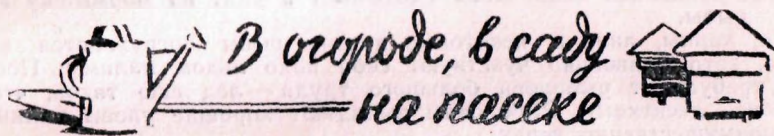 В огороде, в саду
на пасеке